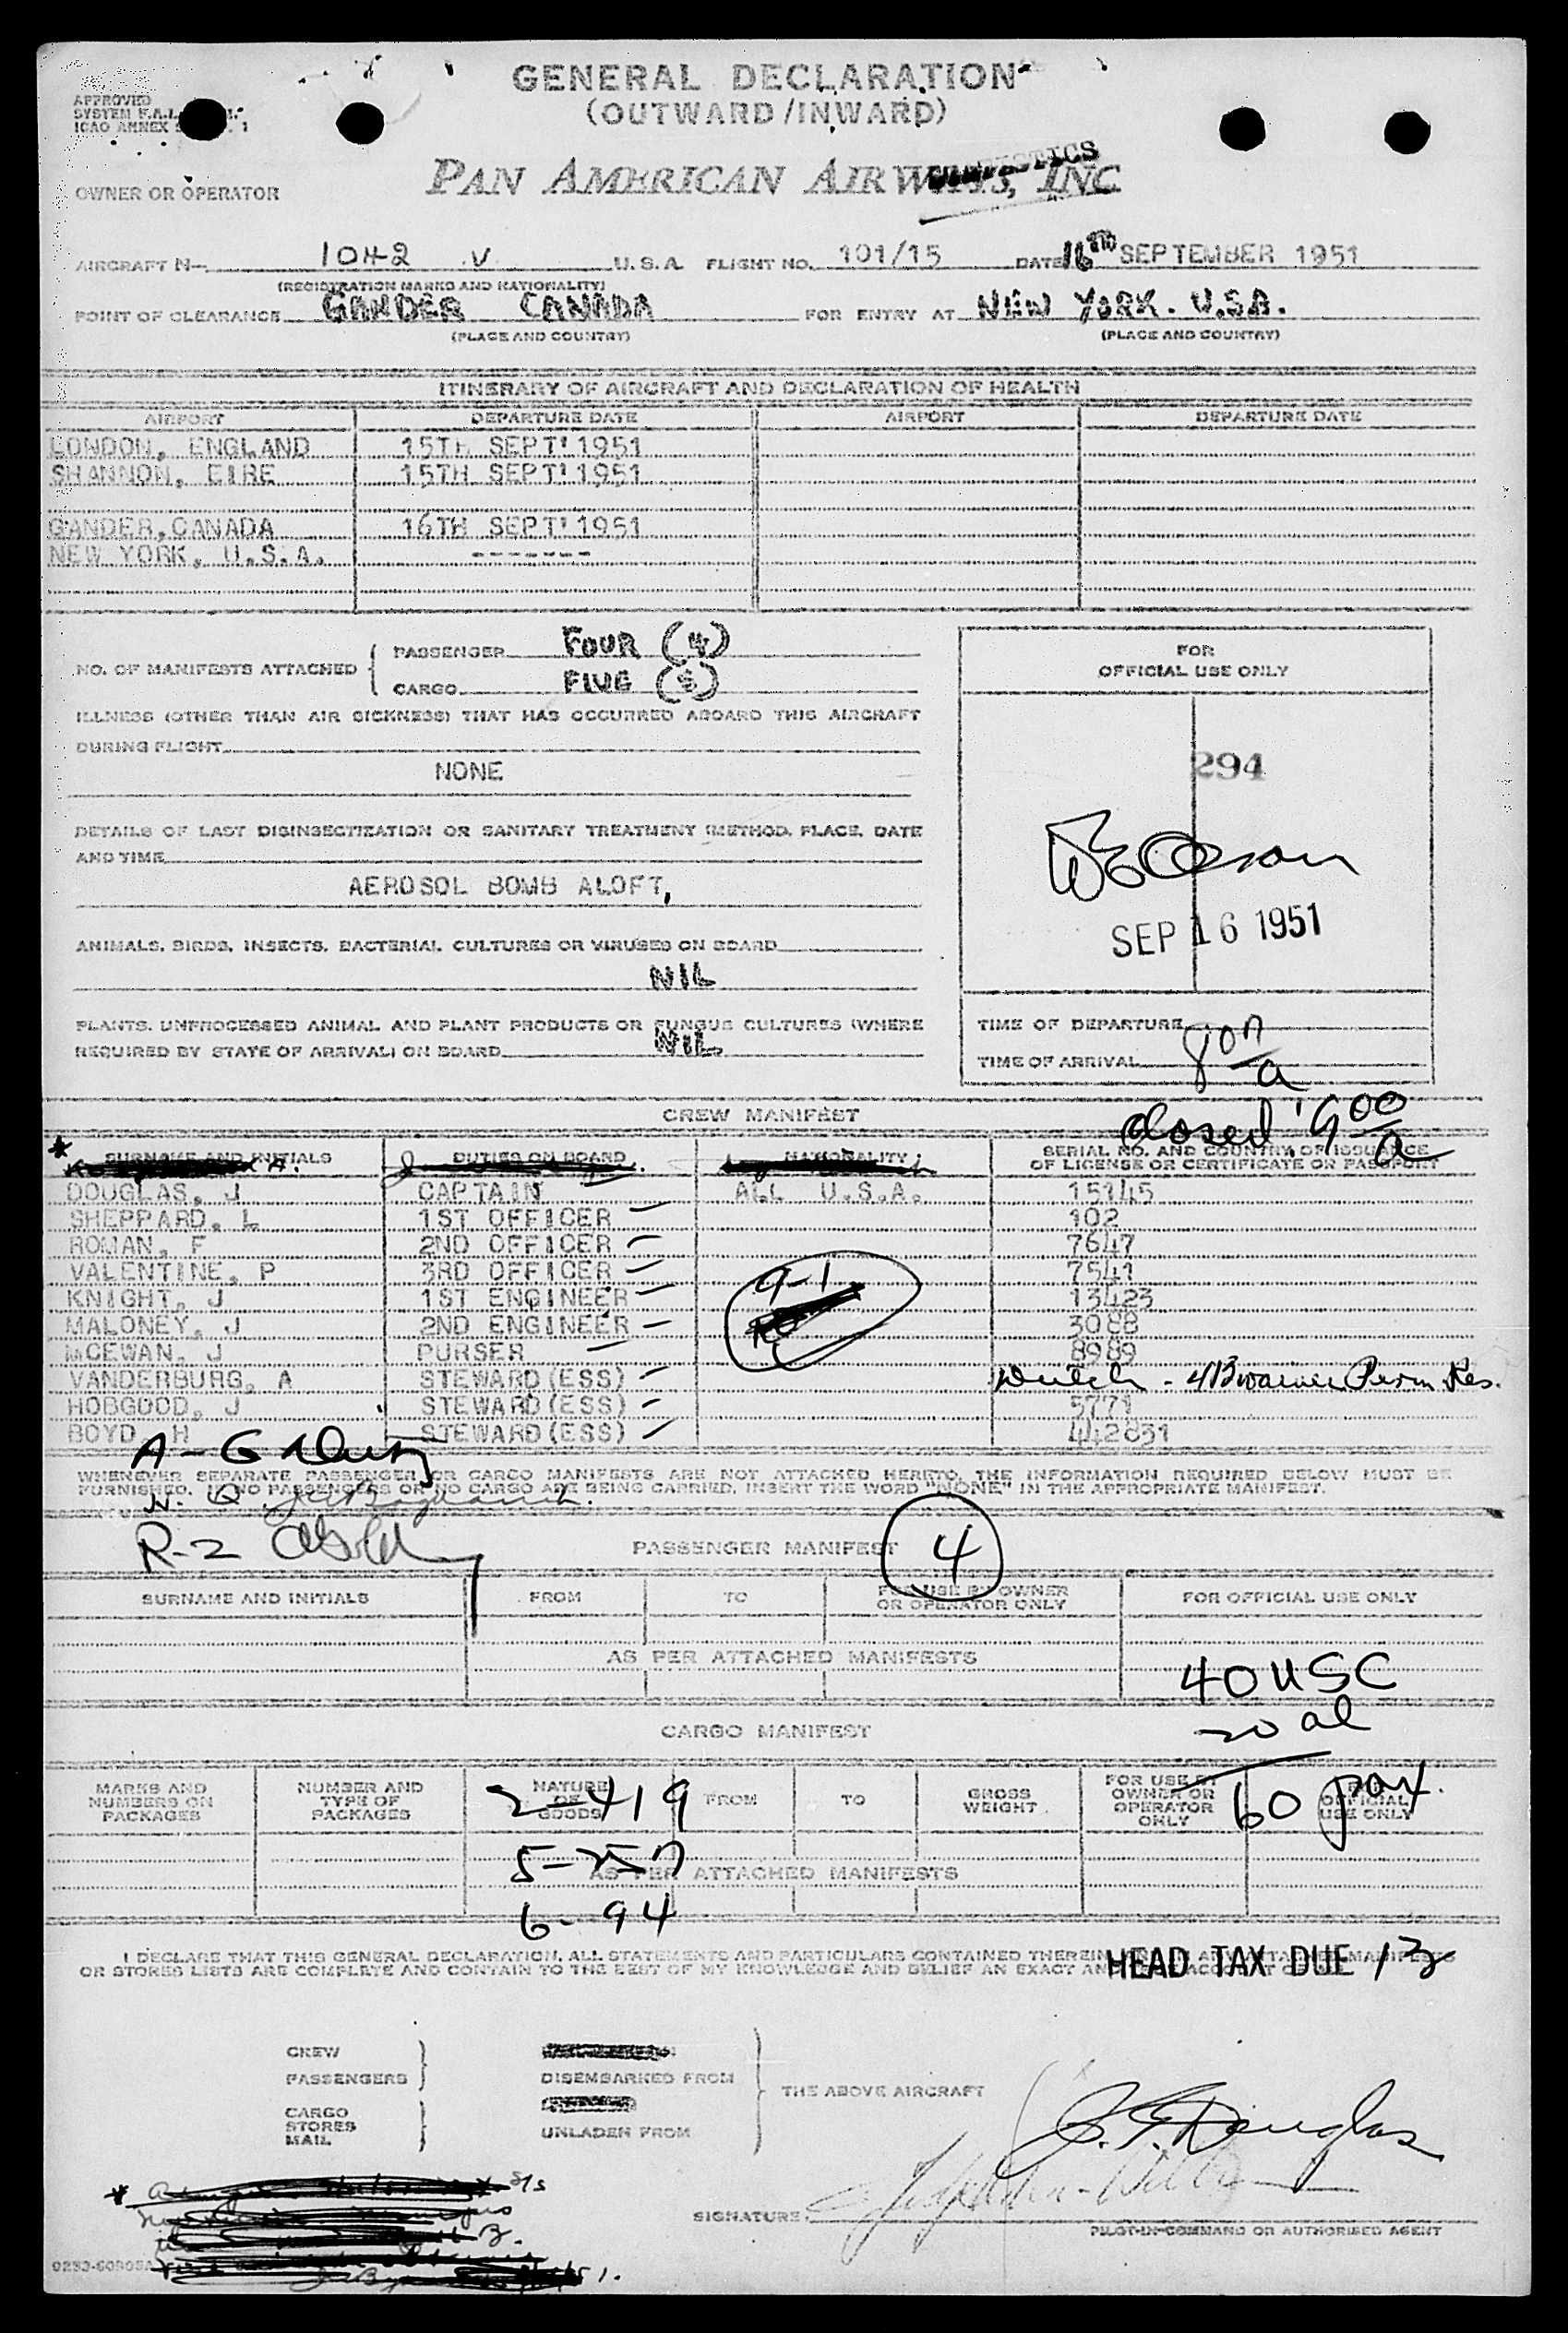 APPROVED
SYSTEM F.A.L.
ICAO ANNEX 1
GENERAL DECLARATION
(OUTWARD/INWARD)
OWNER OR OPERATOR
PAN AMERICAN AIRWAYS, INC
AIRCRAFT N- 1042 V U.S.A. FLIGHT NO. 101/15 DATE 16TH SEPTEMBER 1951
(REGISTRATION MARKS AND NATIONALITY)
POINT OF CLEARANCE GANDER CANADA FOR ENTRY AT NEW YORK. U.S.A.
(PLACE AND COUNTRY) (PLACE AND COUNTRY)
ITINERARY OF AIRCRAFT AND DECLARATION OF HEALTH
AIRPORT DEPARTURE DATE AIRPORT DEPARTURE DATE
LONDON, ENGLAND 15TH SEPT' 1951
SHANNON, EIRE 15TH SEPT' 1951
GANDER, CANADA 16TH SEPT' 1951
NEW YORK, U.S.A. -------
NO. OF MANIFESTS ATTACHED
PASSENGER FOUR (4)
CARGO FIVE (5)
FOR
OFFICIAL USE ONLY
ILLNESS (OTHER THAN AIR SICKNESS) THAT HAS OCCURRED ABOARD THIS AIRCRAFT
DURING FLIGHT
NONE
294
DETAILS OF LAST DISINSECTIZATION OR SANITARY TREATMENT (METHOD, PLACE, DATE
AND TIME
AEROSOL BOMB ALOFT,
SEP 16 1951
ANIMALS, BIRDS, INSECTS, BACTERIAL CULTURES OR VIRUSES ON BOARD
NIL
PLANTS, UNPROCESSED ANIMAL AND PLANT PRODUCTS OR FUNGUS CULTURES (WHERE
REQUIRED BY STATE OF ARRIVAL) ON BOARD NIL
TIME OF DEPARTURE
TIME OF ARRIVAL 8 07 a
closed 9 00 a
CREW MANIFEST
SURNAME AND INITIALS DUTIES ON BOARD NATIONALITY SERIAL NO. AND COUNTRY OF ISSUANCE
OF LICENSE OR CERTIFICATE OR PASSPORT
DOUGLAS, J CAPTAIN ALL U.S.A. 15145
SHEPPARD, L 1ST OFFICER 102
ROMAN, F 2ND OFFICER 7647
VALENTINE, P 3RD OFFICER 7541
KNIGHT, J 1ST ENGINEER 9-1 13423
MALONEY, J 2ND ENGINEER 3088
MCEWAN, J PURSER 8989
VANDERBURG, A STEWARD(ESS) Dutch - Perm. Res.
HOBGOOD, J STEWARD(ESS) 5771
BOYD H STEWARD(ESS) 442831
WHENEVER SEPARATE PASSENGER OR CARGO MANIFESTS ARE NOT ATTACHED HERETO, THE INFORMATION REQUIRED BELOW MUST BE
FURNISHED. IF NO PASSENGERS OR NO CARGO ARE BEING CARRIED, INSERT THE WORD "NONE" IN THE APPROPRIATE MANIFEST.
R-2
PASSENGER MANIFEST 4
SURNAME AND INITIALS FROM TO FOR USE BY OWNER
OR OPERATOR ONLY FOR OFFICIAL USE ONLY
AS PER ATTACHED MANIFESTS
40 USC
20 al
60 pax.
CARGO MANIFEST
MARKS AND
NUMBERS ON
PACKAGES
NUMBER AND
TYPE OF
PACKAGES
NATURE
OF
GOODS
FROM TO GROSS
WEIGHT
FOR USE BY
OWNER OR
OPERATOR
ONLY
FOR
OFFICIAL
USE ONLY
2-419
5-257
AS PER ATTACHED MANIFESTS
6-94
I DECLARE THAT THIS GENERAL DECLARATION, ALL STATEMENTS AND PARTICULARS CONTAINED THEREIN
OR STORES LISTS ARE COMPLETE AND CONTAIN TO THE BEST OF MY KNOWLEDGE AND BELIEF AN EXACT AND
HEAD TAX DUE 13
CREW
PASSENGERS
DISEMBARKED FROM
CARGO
STORES
MAIL
UNLADEN FROM
THE ABOVE AIRCRAFT
J. G. Douglas
SIGNATURE:
PILOT-IN-COMMAND OR AUTHORISED AGENT